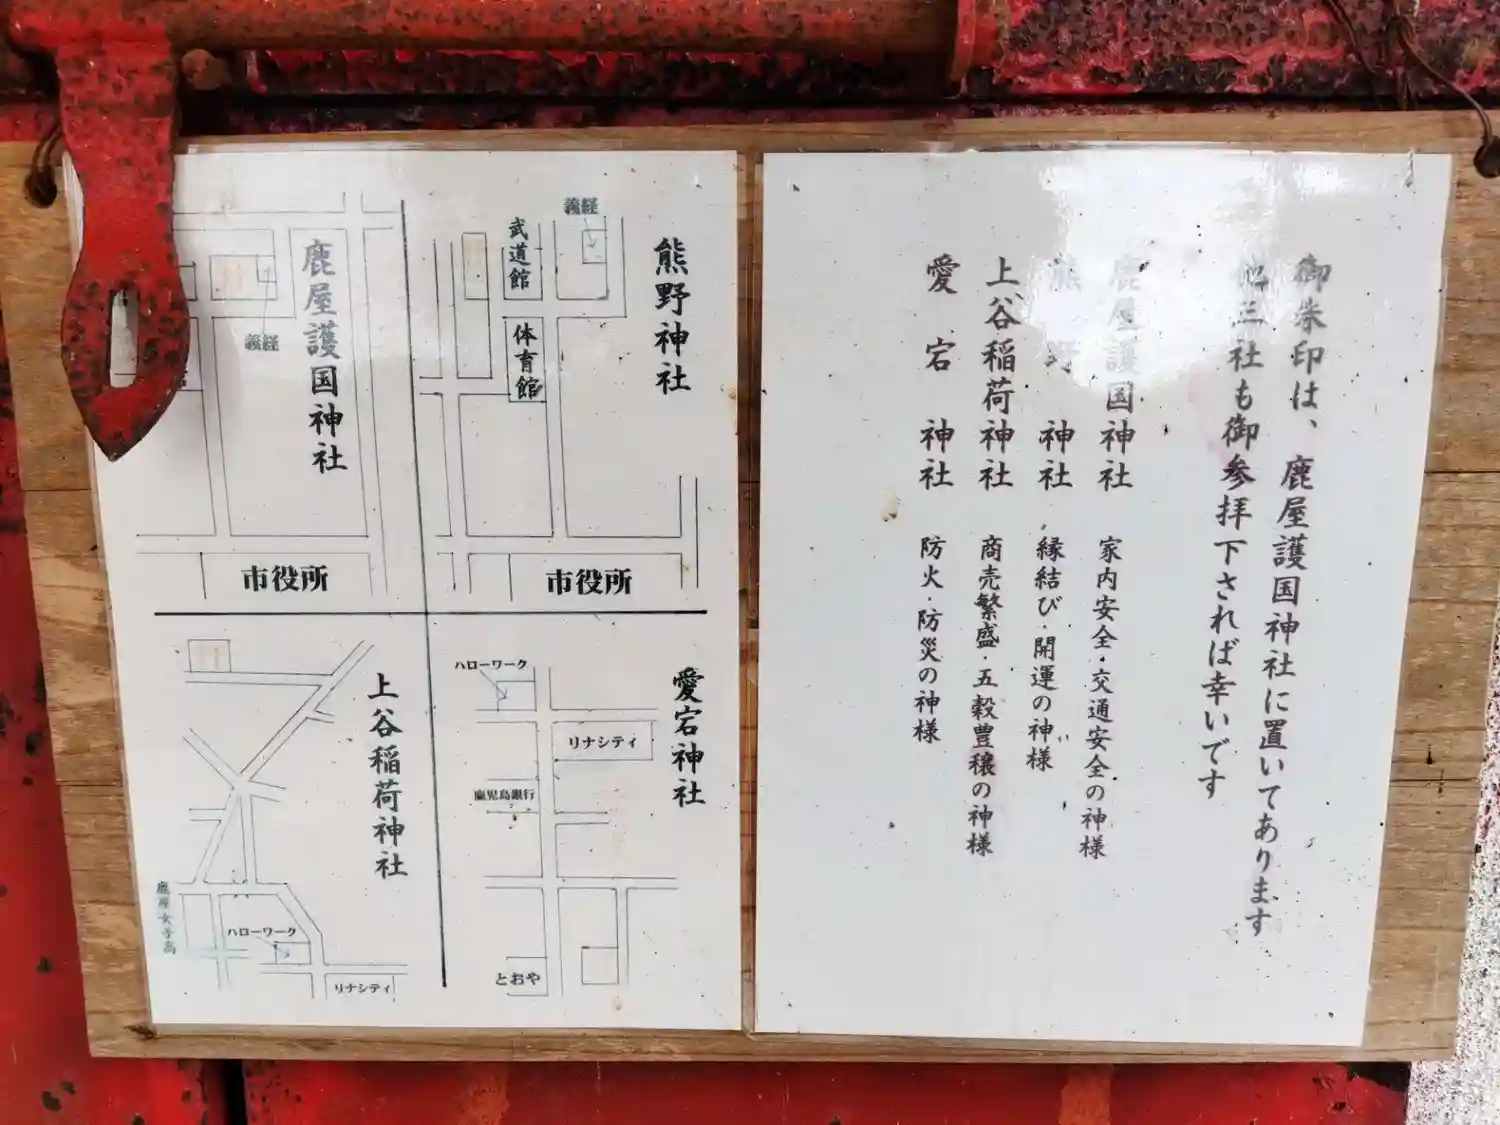 御朱印は、鹿屋護国神社に置いてあります
他三社も御参拝下されば幸いです
鹿屋護国神社 家内安全・交通安全の神様
熊野神社 縁結び・開運の神様
上谷稲荷神社 商売繁盛・五穀豊穣の神様
愛宕神社 防火・防災の神様
熊野神社
義経
武道館
体育館
市役所
鹿屋護国神社
義経
市役所
愛宕神社
ハローワーク
リナシティ
鹿児島銀行
とおや
上谷稲荷神社
鹿屋女子高
ハローワーク
リナシティ